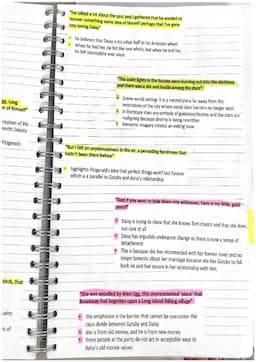 "he talked a lot about the past and I gathered that he wanted to
recover something some idea of himself perhaps that I've gone
into loving Daisy"
he believes that Daisy is his other half to his Aristotan wheel
When he had her, he felt like one whole, but when he lost her,
he felt incomplete ever since
"The quiet lights in the houses were burning out into the darkness
and there was a stir and bustle among the stars"
Green world setting: it is a natural place far away from the
restrictions of the city where social class barriers no longer exist
In literature stars are symbols of guidance/destiny and the stars are
realigning because destiny is being rewritten
Sometric imagery creates an exiting tone
"But I felt an unpleasantness in the air, a pervading harshness that
hadn't been there before"
highlights Fitzgerald's idea that perfect things won't last forever
which is a parallel to Gatsby and daisy's relationship
"And if you want to take down any addresses, here is my little, gold
pencil"
Daisy is trying to show that she knows Tom cheats and that she does
not care at all
Daisy has arguably undergone change as there is now a sense of
detachment
This is because she has reconnected with her former lover and no
longer laments about her marriage because she has Gatsby to fall
back on and feel secure in her relationship with him.
"She was appalled by West Egg, this unprecedented 'place' that
Broadway had begotten upon a Long Island fishing village"
this emphasise is the barrier that cannot be overcome- the
class divide between Gatsby and Daisy
she is from old money, and he is from new money
these people at the party do not act in acceptable ways to
daisy's old money values
Long
of himself"
creation of life
north Dakota
Fitzgerald
deck, that